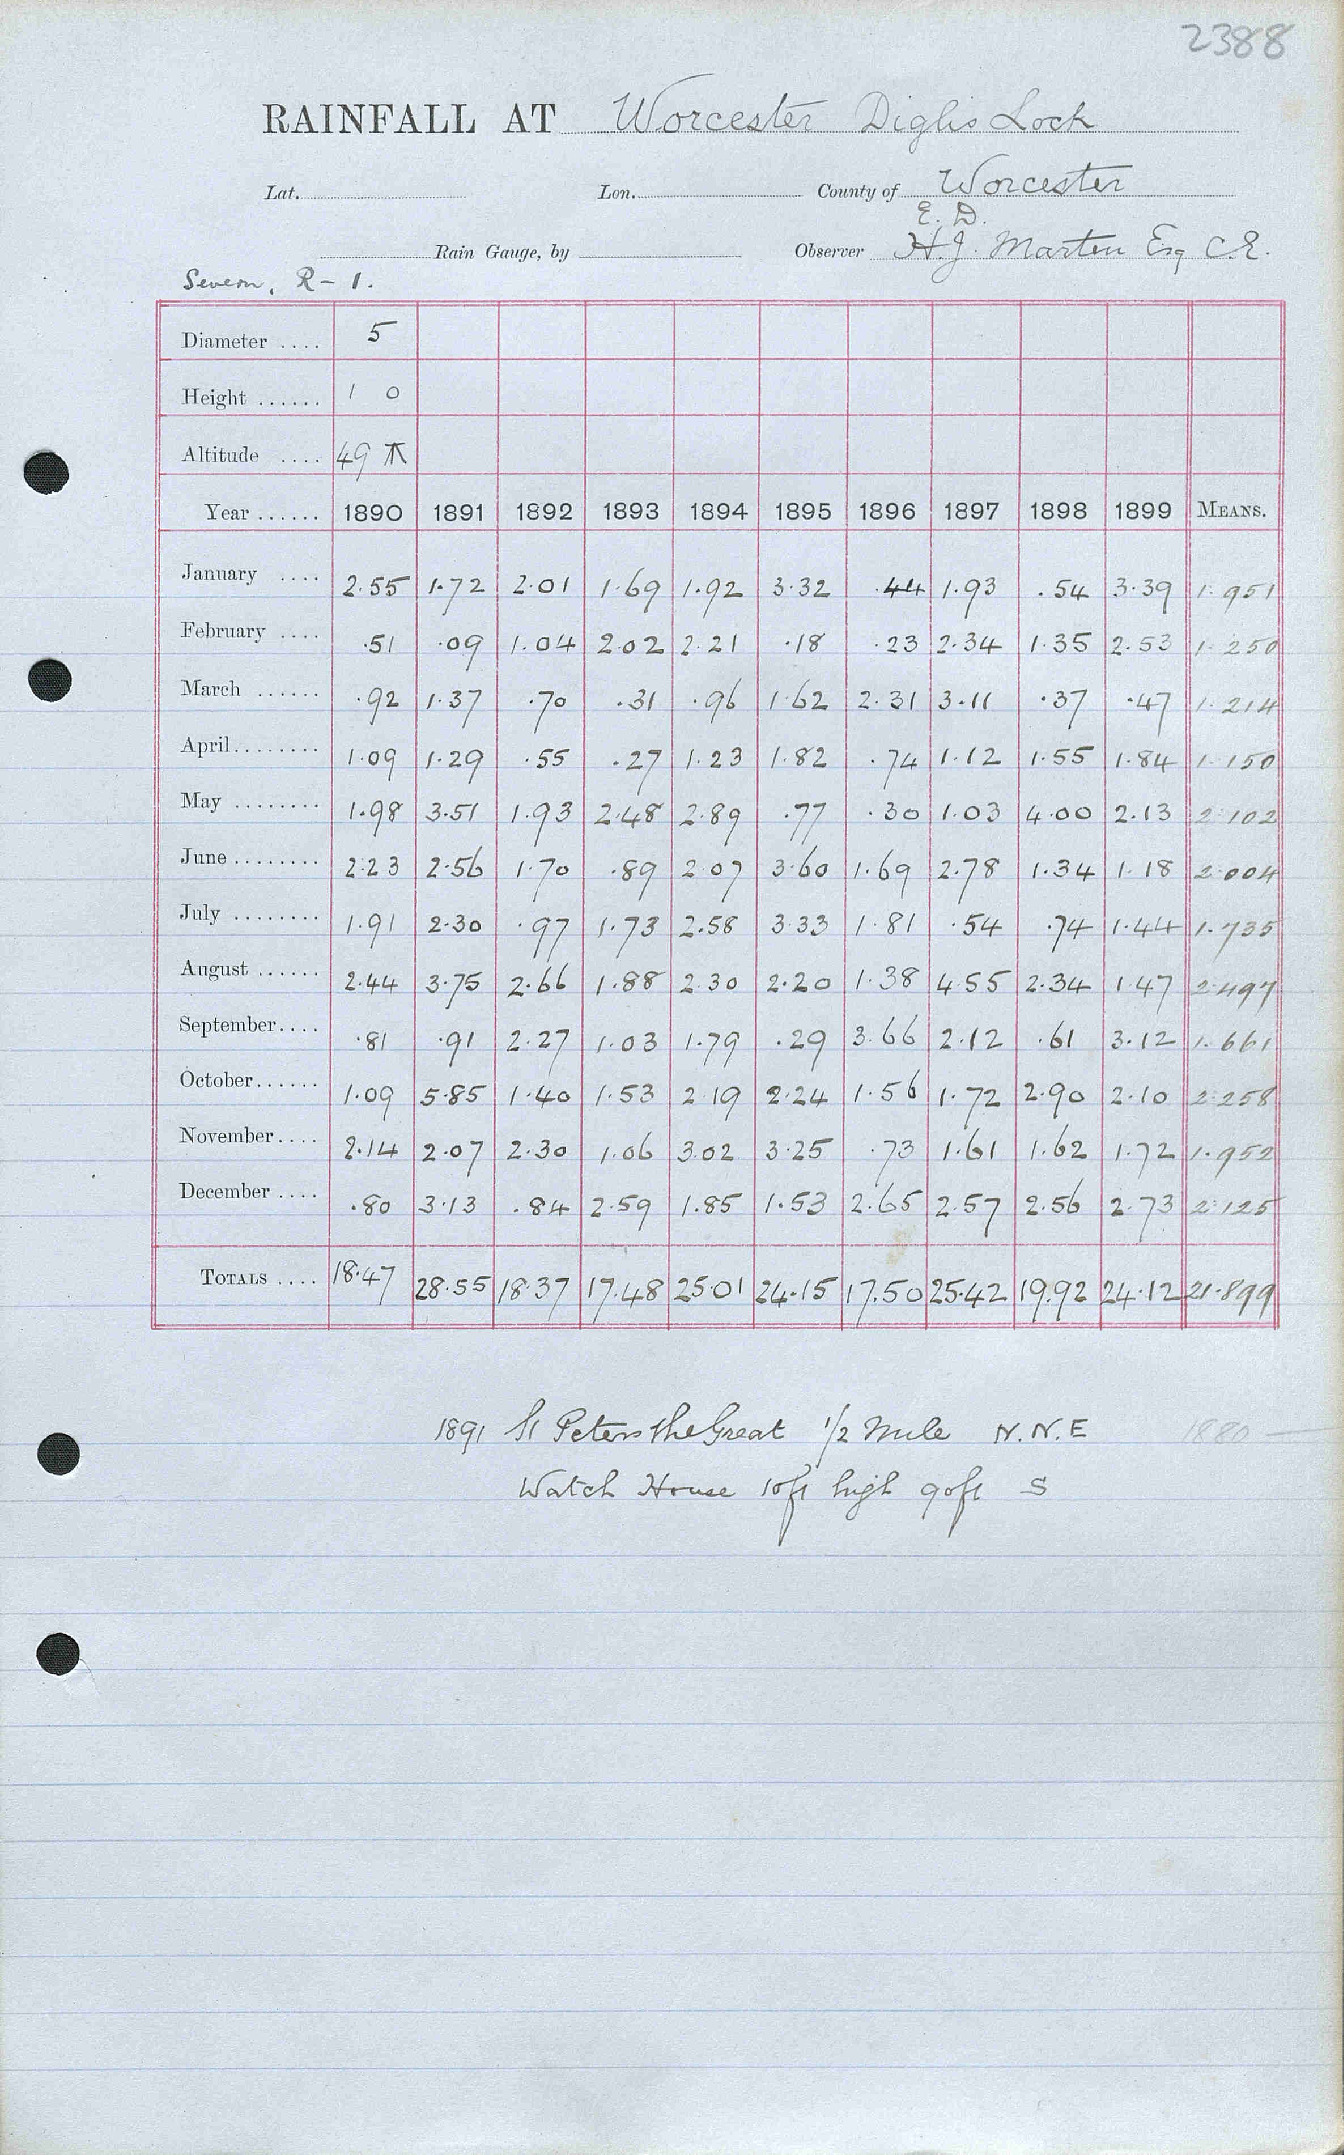 2388
RAINFALL AT Worcester Diglis Lock
Lat. Lon. County of Worcester
E. D.
Rain Gauge, by Observer H.J. Marten Esq C.E.
Severn, R - 1.
Diameter .... 5
Height ...... 1 0
Altitude .... 49
Year ...... 1890 1891 1892 1893 1894 1895 1896 1897 1898 1899 MEANS.
January .... 2.55 1.72 2.01 1.69 1.92 3.32 .44 1.93 .54 3.39 1.951
February .... .51 .09 1.04 2.02 2.21 .18 .23 2.34 1.35 2.53 1.250
March ...... .92 1.37 .70 .31 .96 1.62 2.31 3.11 .37 .47 1.214
April ........ 1.09 1.29 .55 .27 1.23 1.82 .74 1.12 1.55 1.84 1.150
May ........ 1.98 3.51 1.93 2.48 2.89 .77 .30 1.03 4.00 2.13 2.102
June ........ 2.23 2.56 1.70 .89 2.07 3.60 1.69 2.78 1.34 1.18 2.004
July ........ 1.91 2.30 .97 1.73 2.58 3.33 1.81 .54 .74 1.44 1.735
August ...... 2.44 3.75 2.66 1.88 2.30 2.20 1.38 4.55 2.34 1.47 2.497
September .... .81 .91 2.27 1.03 1.79 .29 3.66 2.12 .61 3.12 1.661
October ...... 1.09 5.85 1.40 1.53 2.19 2.24 1.56 1.72 2.90 2.10 2.258
November .... 2.14 2.07 2.30 1.06 3.02 3.25 .73 1.61 1.62 1.72 1.952
December .... .80 3.13 .84 2.59 1.85 1.53 2.65 2.57 2.56 2.73 2.125
TOTALS .... 18.47 28.55 18.37 17.48 25.01 24.15 17.50 25.42 19.92 24.12 21.899
1891 St Peters the Great 1/2 Mile N.N.E 1880 —
Watch House 10ft high 90ft S